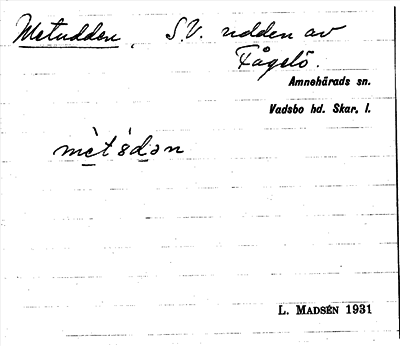 Metudden, S.V. udden av
Fågelö.
Amnehärads sn.
Vadsbo hd. Skar. l.
L. MADSÉN 1931